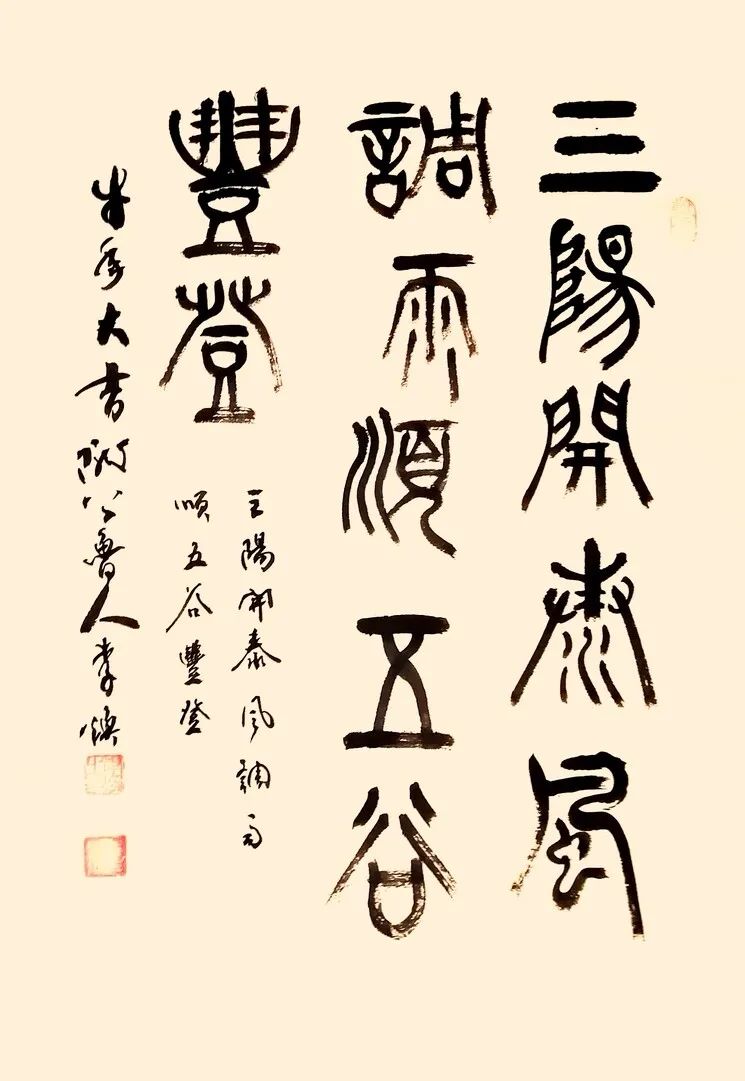 三陽開泰風
調雨順五谷
豐登
三陽開泰風調雨
順五谷豐登
牛年大吉魯人李